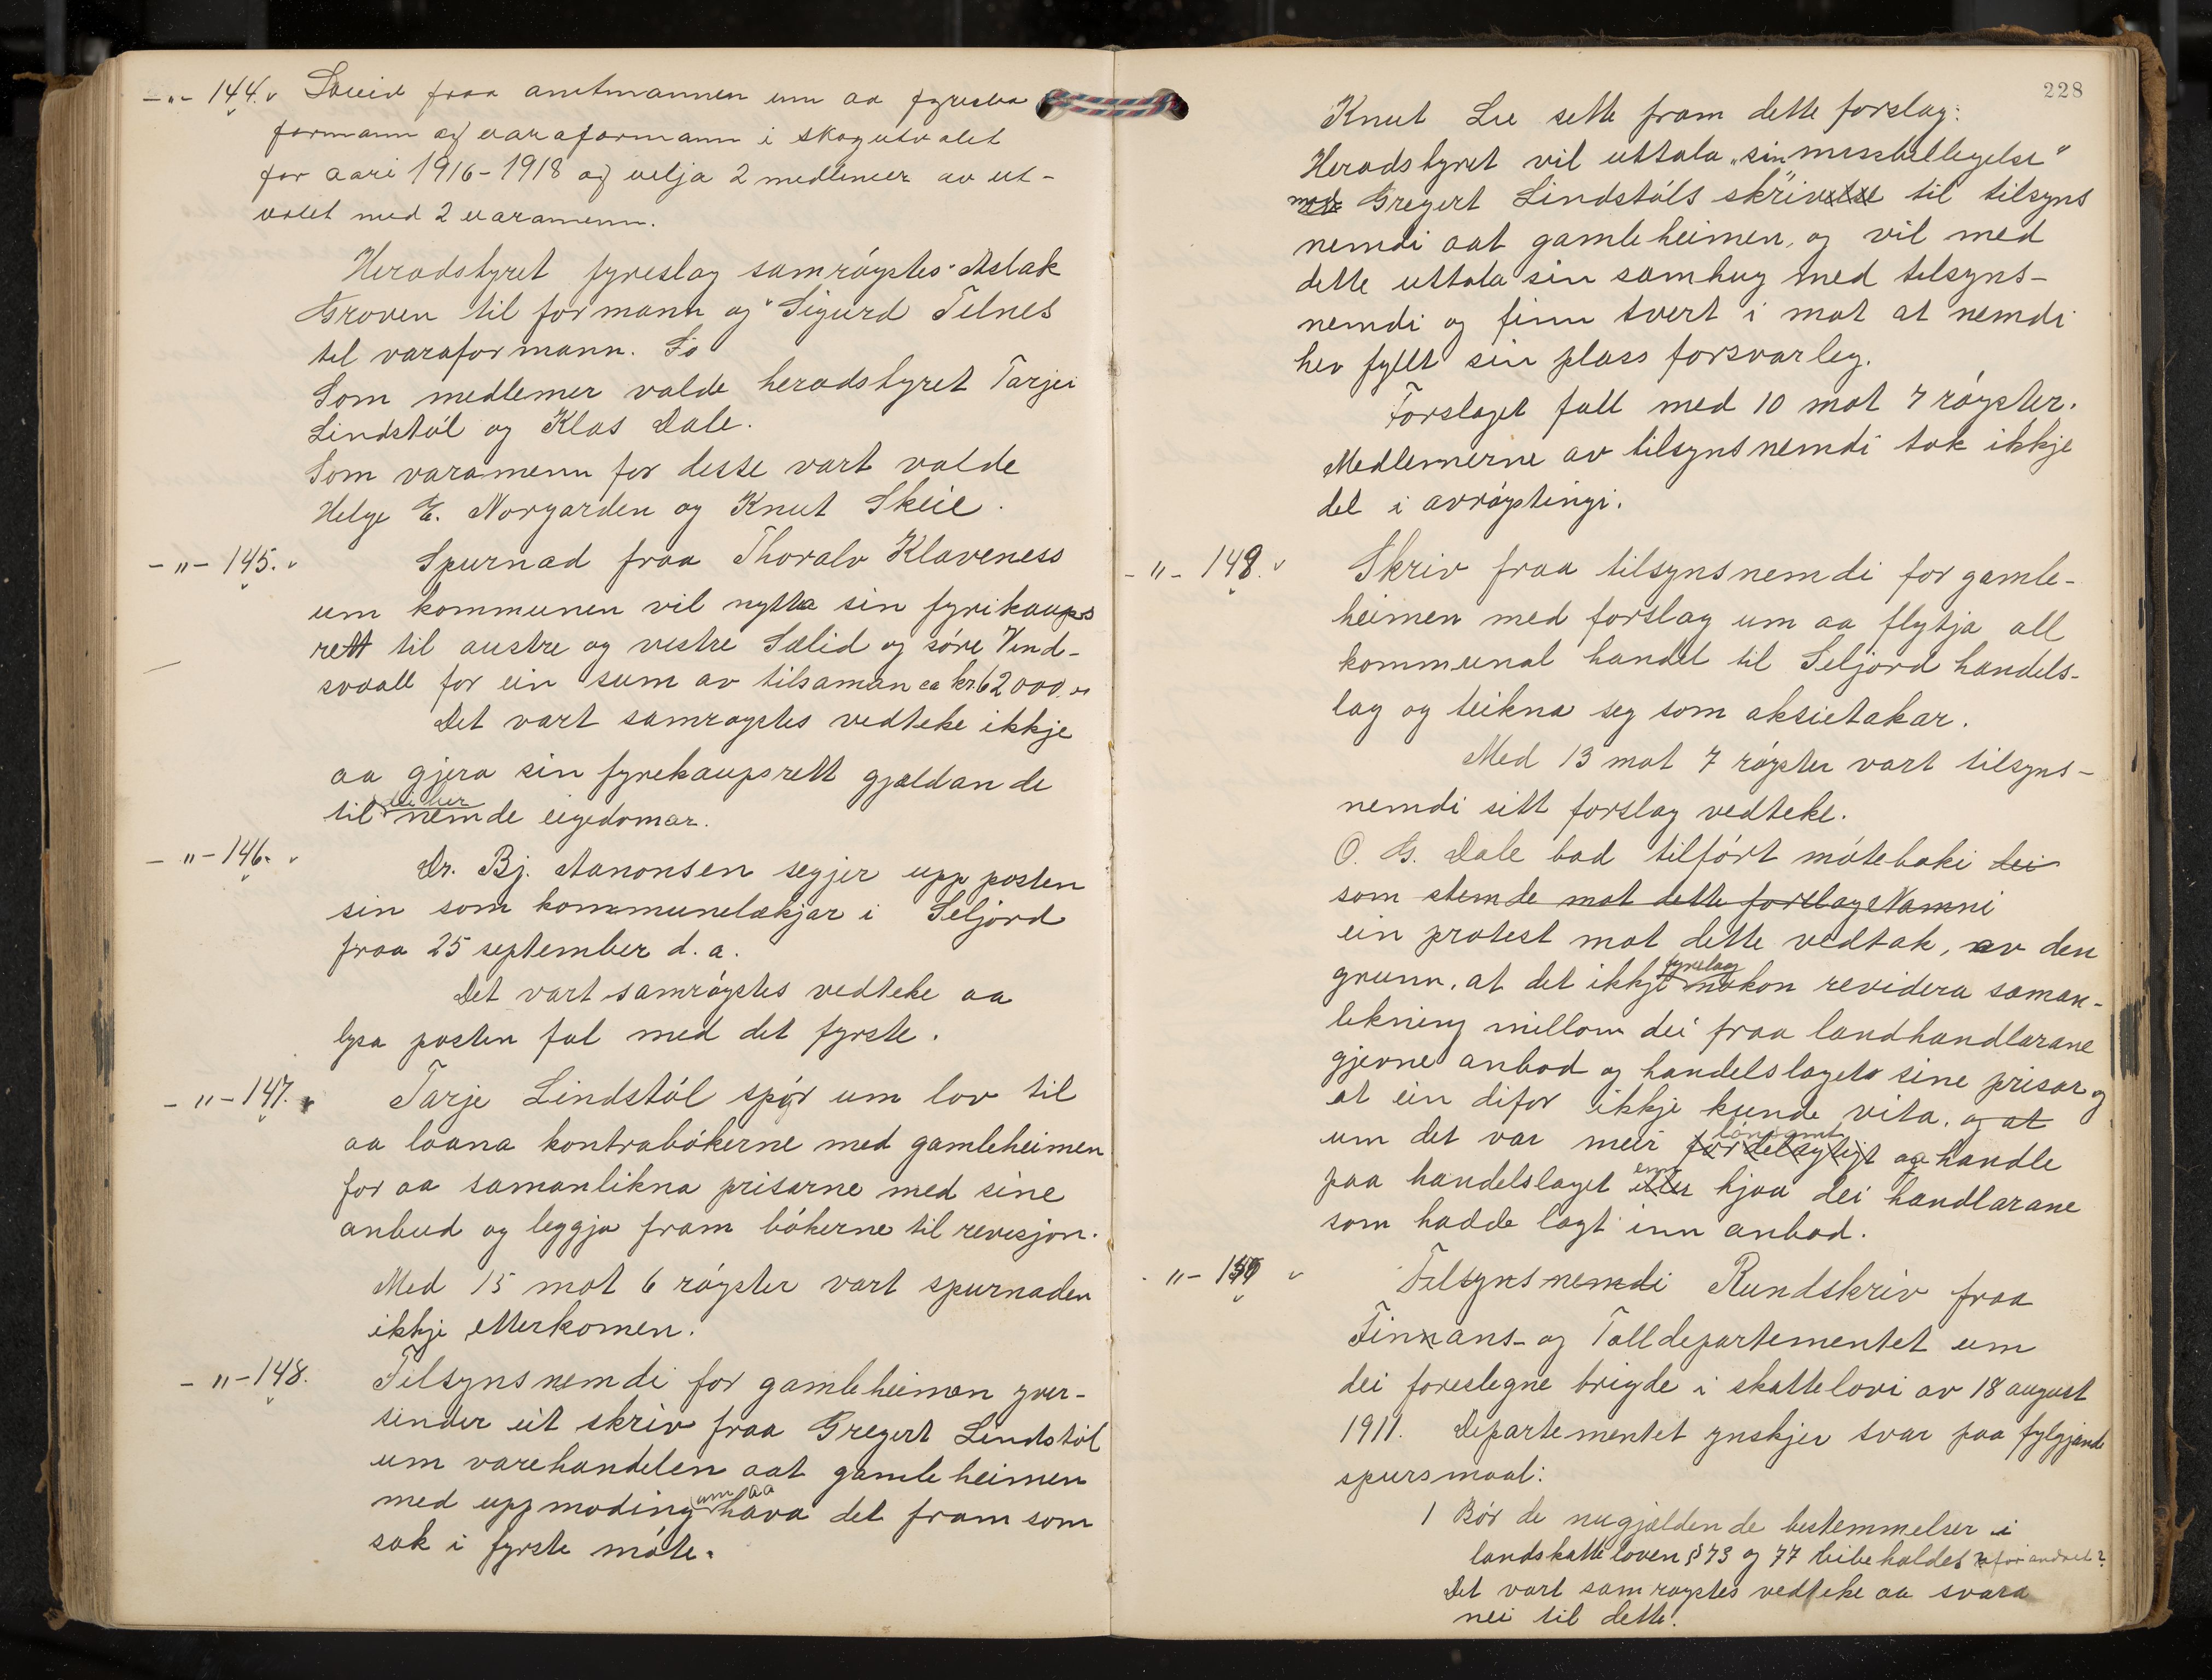 -"- 144. v Skriv fraa amtmannen um aa fyreslaa
formann og varaformann i skogutvalet
for aari 1916-1918 og velja 2 medlemer av ut-
valet med 2 varamenn.
Heradstyret fyreslog samröystes Aslak
Groven til formann og Sigurd Telnes
til varaformann. So
Som medlemer valde heradstyret Tarjei
Lindstöl og Klas Dale.
Som varamenn for desse vart valde
Helge E. Norgarden og Knut Skeie.
-"- 145. v Spurnad fraa Thoralv Klaveness
um kommunen vil nytta sin fyrikaups
rett til austre og vestre Sælid og söre Vind-
svaall for ein sum av tilsaman ca kr 62000.00
Det vart samroystes vedteke ikkje
aa gjera sin fyrekaupsrett gjældande
til nemde eigedomar.
-"- 146. v Dr. Bj. Aanonsen segjer upp posten
sin som kommunelækjar i Seljord
fraa 25 september d. a.
Det vart samröystes vedteke aa
lysa posten fal med det fyrste.
-"- 147. v Tarje Lindstöl spör um lov til
aa laana kontrabökerne med gamleheimen
for aa samanlikna prisarne med sine
anbud og leggja fram bökerne til revisjon.
Med 15 mot 6 röyster vart spurnaden
ikkje etterkomen.
-"- 148. Tilsynsnemdi for gamleheimen yver-
sender eit skriv fraa Gregert Lindstöl
um varehandelen aat gamleheimen
med uppmoding um aa hava det fram som
sak i fyrste möte.
228
Knut Lie sette fram dette forslag:
Heradstyret vil uttala "sin missbillegelse"
mod Gregert Lindstöls skrivelse til tilsyns
nemdi aat gamleheimen, og vil med
dette uttala sin samhug med tilsyns-
nemdi og finn tvert i mot at nemdi
hev fyllt sin plass forsvarleg.
Forslaget fall med 10 mot 7 röyster.
Medlemerne av tilsynsnemdi tok ikkje
del i avröystingi.
-"- 149. v Skriv fraa tilsynsnemdi for gamle-
heimen med forslag um aa flytja all
kommunal handel til Seljord handels-
lag og teikna seg som aksietakar.
Med 13 mot 7 röyster vart tilsyns-
nemdi sitt forslag vedteke.
O. G. Dale bad tilfört möteboki dei
som stemde mot dette forslag Namni
ein protest mot dette vedtak, av den
grunn, at det ikkje fyrelag nokon revidera saman-
likning millom dei fraa landhandlarane
gjevne anbod og handelslagets sine prisar og
at ein difor ikkje kunde vita, og at
um det var meir fordelagtigt lönsamt aa handle
paa handelslaget eller enn hjaa dei handlarane
som hadde lagt inn anbod.
-"- 150 v Tilsynsnemdi Rundskriv fraa
Finnans- og Tolldepartementet um
dei foreslegne brigde i skattelovi av 18 august
1911. Departementet ynskjer svar paa fylgjande
spursmaal:
1 Bör de nugjældende bestemmelser i
landskatteloven § 73 og 77 bibeholdes uforandret?
Det vart samroystes vedteke aa svara
nei til dette.